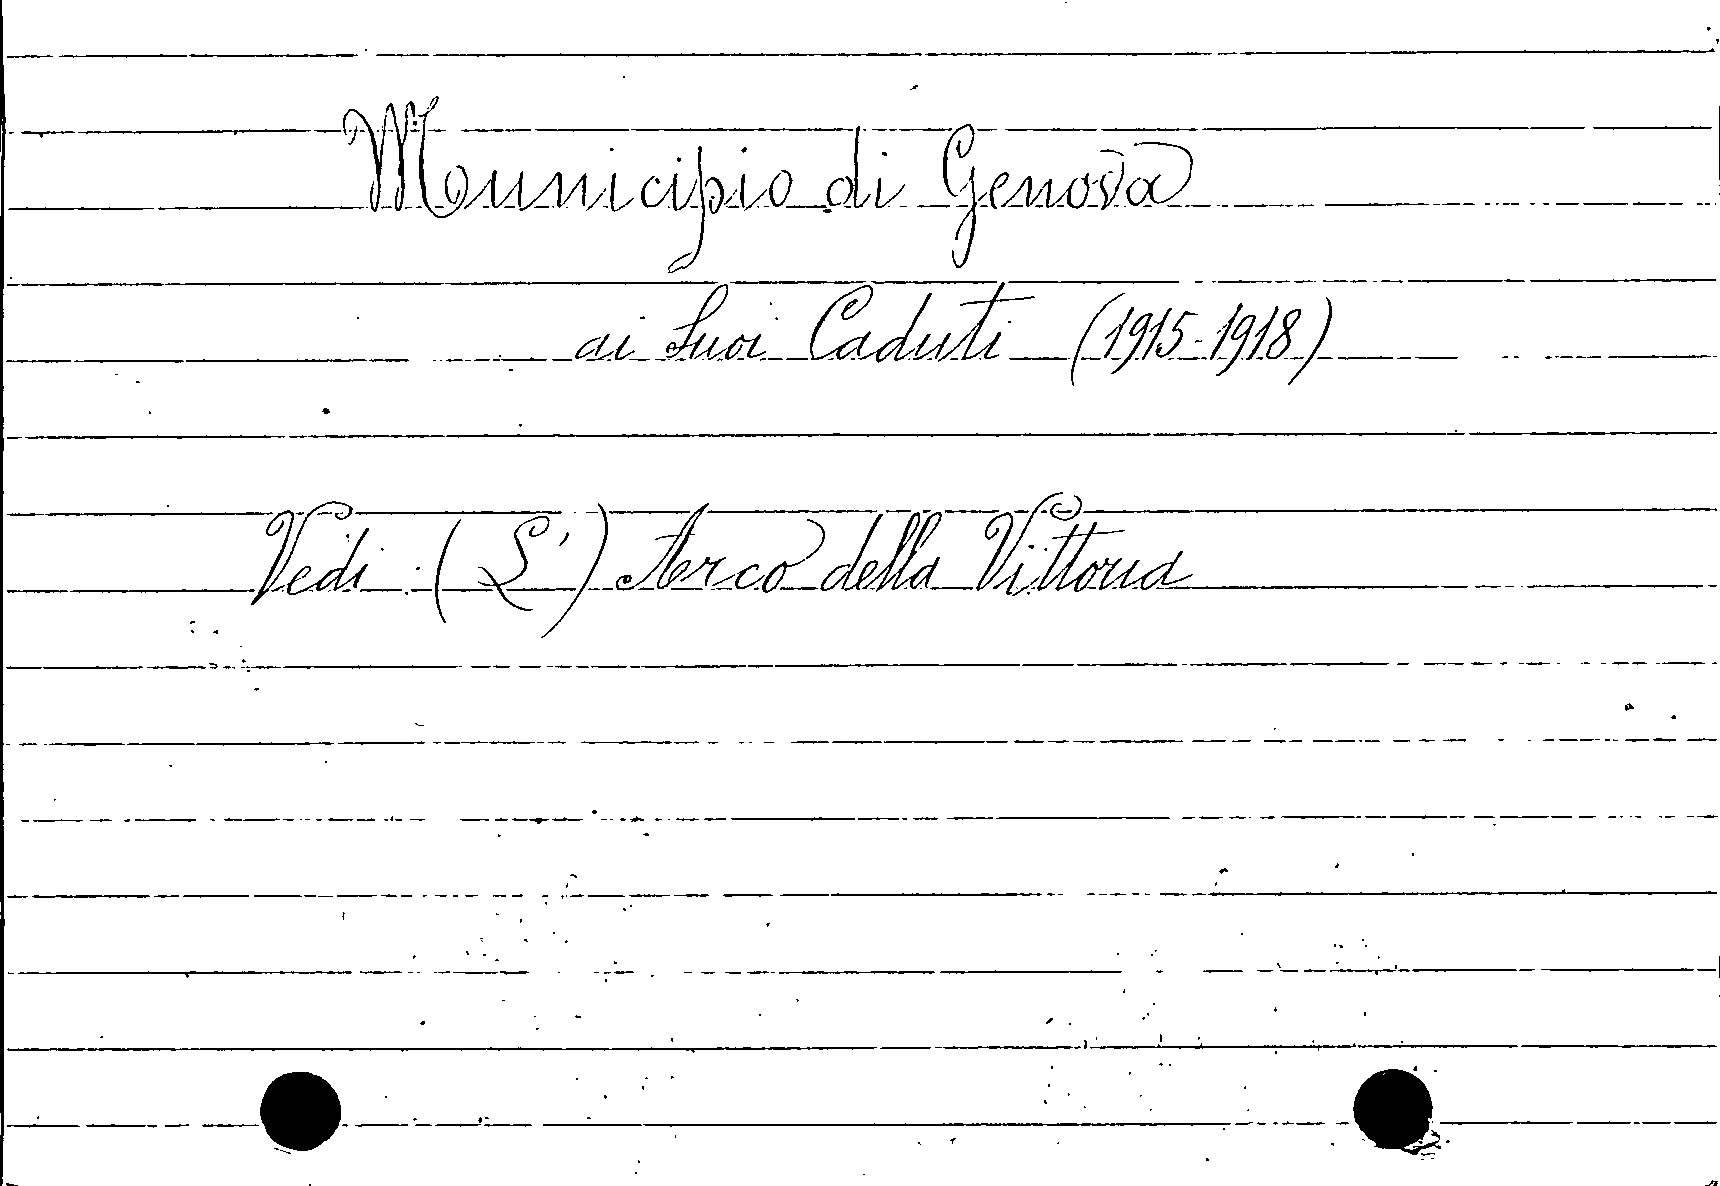 Municipio di Genova
ai Suoi Caduti (1915-1918)
Vedi (L') Arco della Vittoria